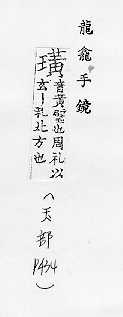 龍龕手鏡
璜音黄璧也周礼以
玄丨礼北方也
（玉部
P434）